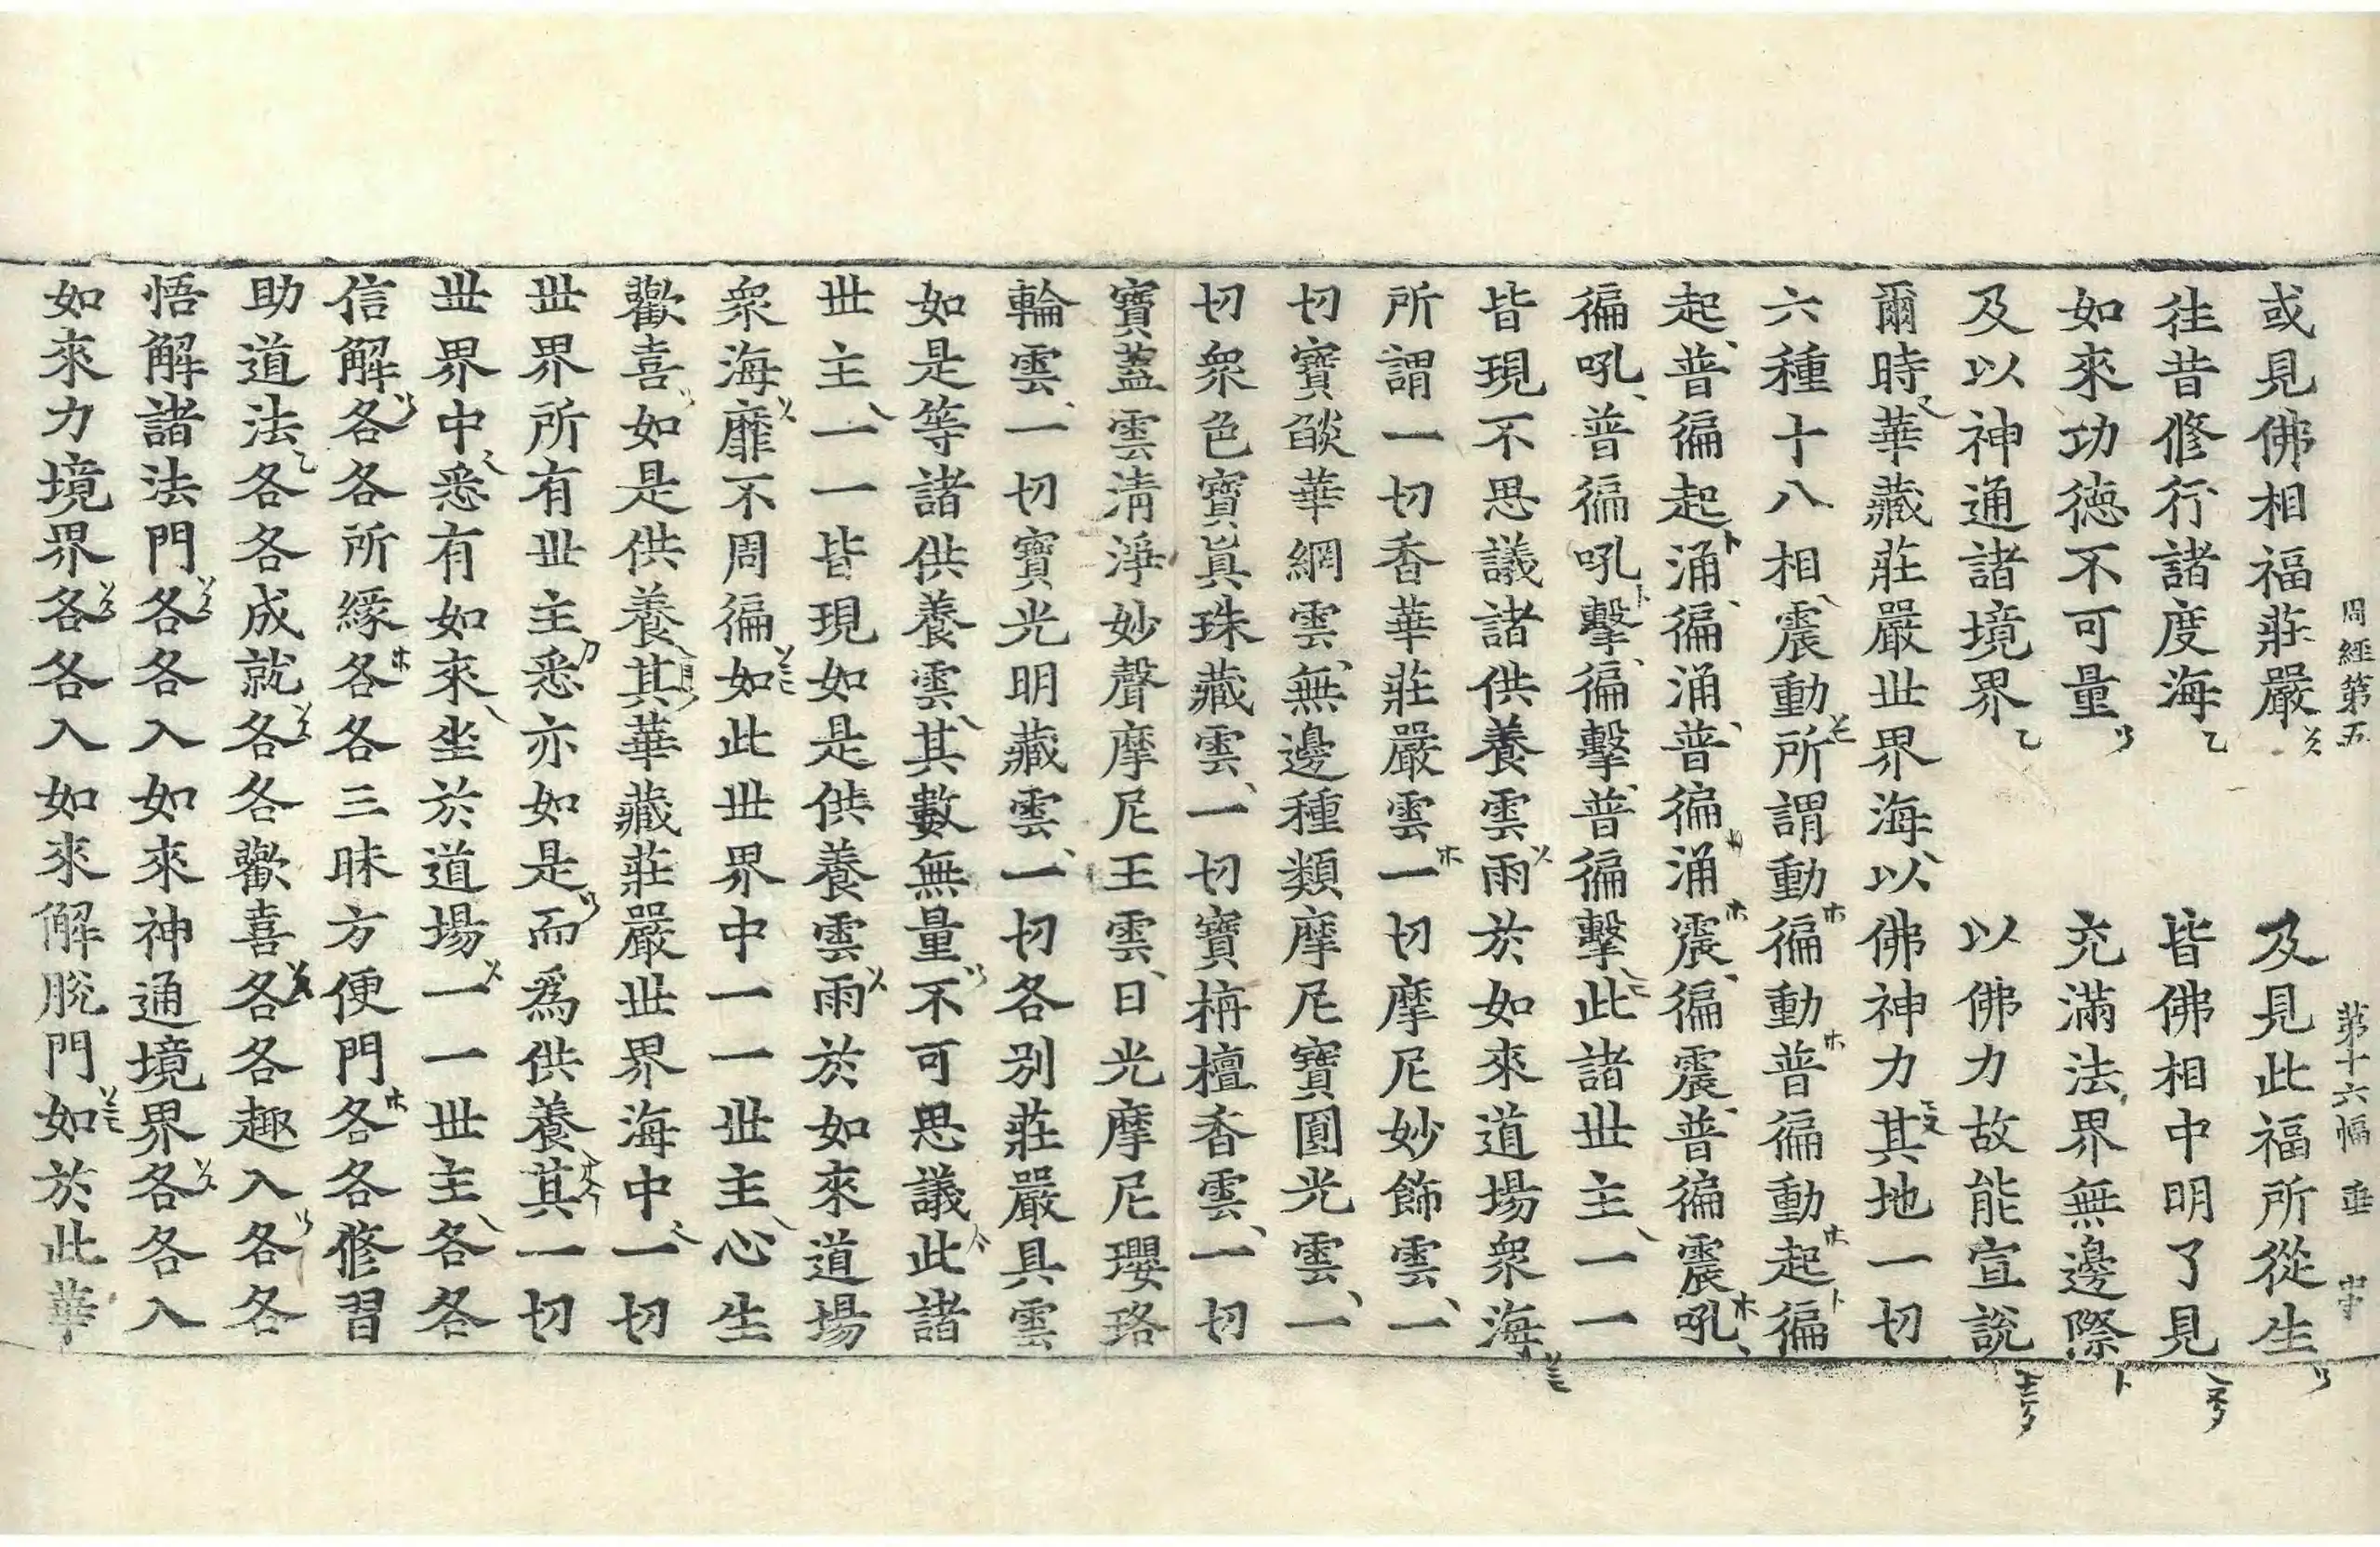 周經第五　第十六幅　垂
或見佛相福莊嚴　及見此福所從生
往昔修行諸度海　皆佛相中明了見
如來功德不可量　充滿法界無邊際
及以神通諸境界　以佛力故能宣說
爾時華藏莊嚴世界海以佛神力其地一切
六種十八相震動所謂動徧動普徧動起徧
起普徧起涌徧涌普徧涌震徧震普徧震吼
徧吼普徧吼擊徧擊普徧擊此諸世主一一
皆現不思議諸供養雲雨於如來道場衆海
所謂一切香華莊嚴雲一切摩尼妙飾雲一
切寶燄華網雲無邊種類摩尼寶圓光雲一
切衆色寶眞珠藏雲一切寶栴檀香雲一切
寶蓋雲清淨妙聲摩尼王雲日光摩尼瓔珞
輪雲一切寶光明藏雲一切各別莊嚴具雲
如是等諸供養雲其數無量不可思議此諸
世主一一皆現如是供養雲雨於如來道場
衆海靡不周徧如此世界中一一世主心生
歡喜如是供養其華藏莊嚴世界海中一切
世界所有世主悉亦如是而爲供養其一切
世界中悉有如來坐於道場一一世主各各
信解各各所緣各各三昧方便門各各修習
助道法各各成就各各歡喜各各趣入各各
悟解諸法門各各入如來神通境界各各入
如來力境界各各入如來解脫門如於此華